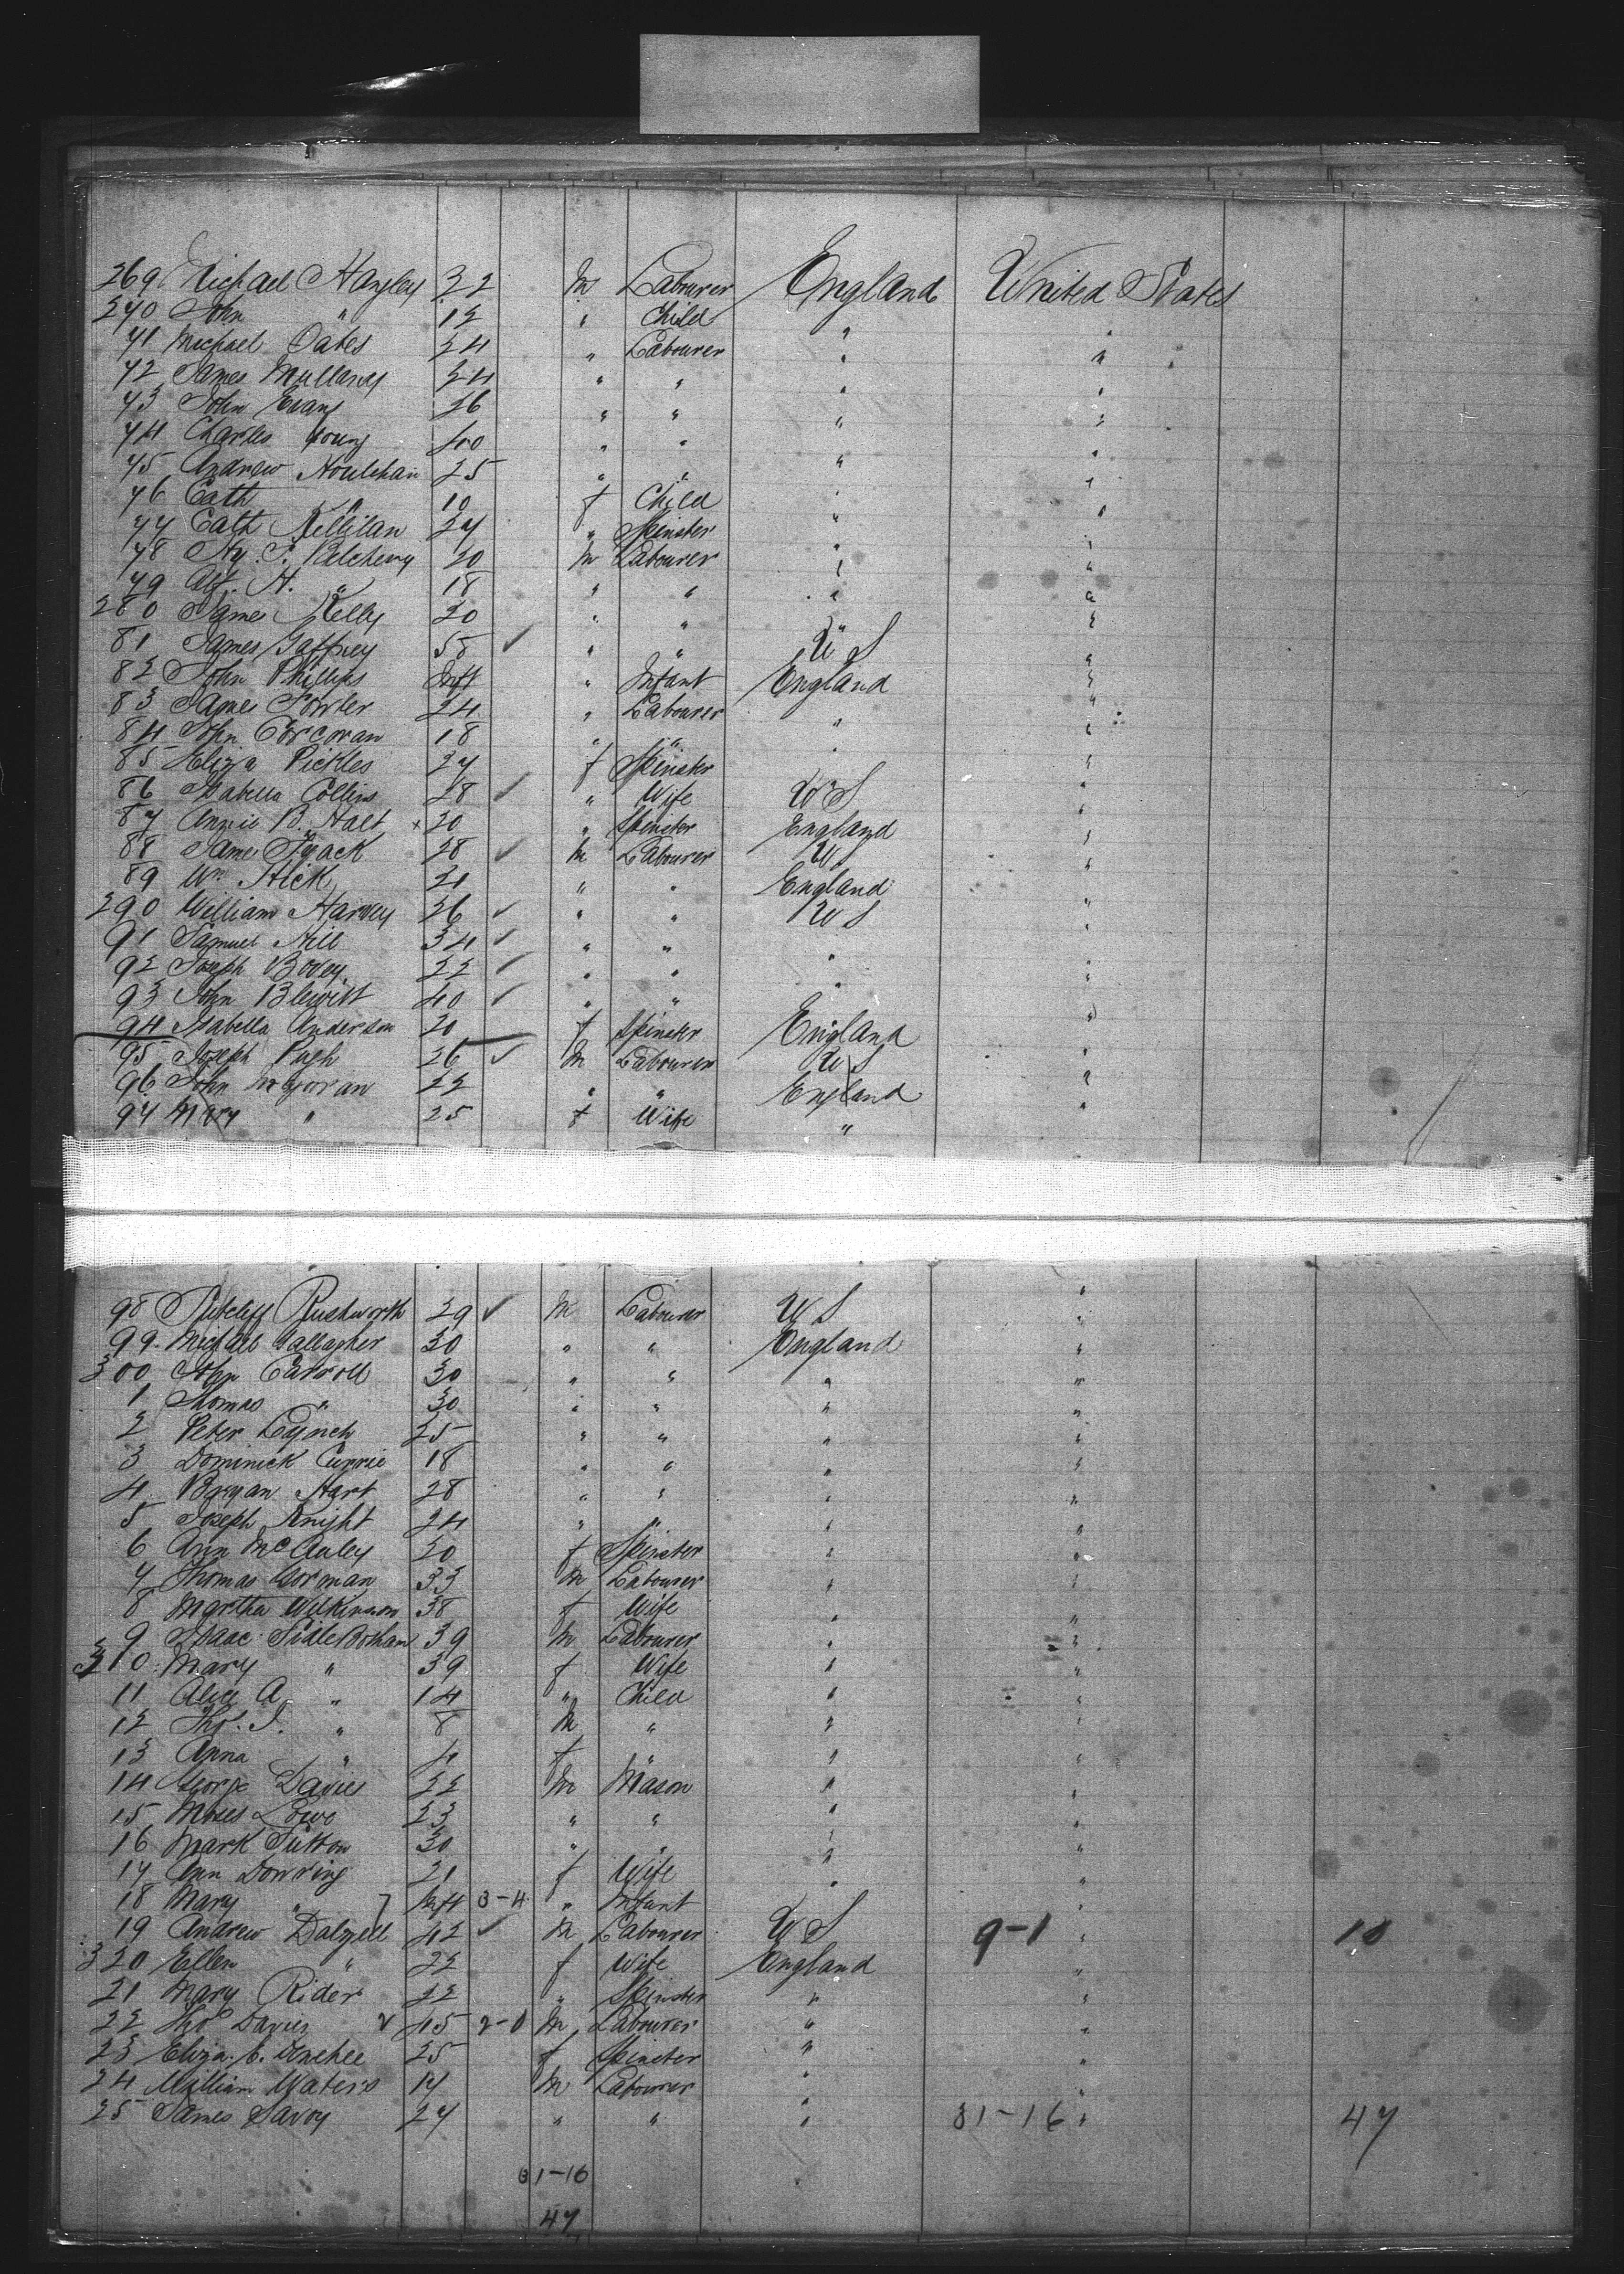 269 Michael Hanley 22 m Labourer England United States
270 John " 12 " Child " "
71 Michael Oates 24 " Labourer " "
72 James Mullaney 24 " " " "
73 John Evans 26 " " " "
74 Charles Young 40 " " " "
75 Andrew Houlehan 25 " " " "
76 Cath " 10 f Child " "
77 Cath 27 " Spinster " "
78 Hy. S. 20 m Labourer " "
79 Alf. H. " 18 " " " "
280 James Kelly 20 " " " "
81 James Gaffney 58 ✓ " " U S "
82 John Phillips Inft " Infant England "
83 James Fowler 24 " Labourer " "
84 John Corcoran 18 " " " "
85 Eliza Pickles 27 f Spinster "
86 Isabella Collins 28 ✓ " Wife U S "
87 Annie B. Halt x 20 " Spinster England "
88 James 28 ✓ m Labourer U S "
89 Wm Hick 21 " " England "
290 William Harvey 26 ✓ " " U S "
91 Samuel Hill 34 ✓ " " "
92 Joseph Bovey 22 ✓ " " " "
93 John Blewitt 40 ✓ " " " "
94 Isabella Anderson 20 f Spinster England "
95 Joseph Pugh 26 ✓ m Labourer U S "
96 John McGovran 22 " " England "
97 Mary " 25 f Wife " "
98 Sutcliff Rushworth 29 ✓ m Labourer U S "
99 Michael Gallagher 30 " " England "
300 John Carroll 30 " " " "
1 Thomas " 30 " " " "
2 Peter Lynch 25 " " " "
3 Dominick Currie 18 " " " "
4 Bryan Hart 28 " " " "
5 Joseph Knight 24 " " " "
6 Ann McAuley 20 f Spinster " "
7 Thomas Gorman 33 m Labourer " "
8 Martha Wilkinson 38 f Wife " "
9 Isaac SidleBotham 39 m Labourer " "
310 Mary " 39 f Wife " "
11 Alice A. " 14 " Child " "
12 Thos. I. " 8 m " " "
13 Anna " 4 f " " "
14 George Davies 22 m Mason " "
15 Moses Lowe 23 " " " "
16 Mark Sutton 30 " " " "
17 Ann Dowring 21 f Wife " "
18 Mary " Inft 3-4 " Infant "
19 Andrew Dalzell 42 ✓ m Labourer U S 9-1 " 10
320 Ellen " 22 f Wife England "
21 Mary Rider 22 " Spinster " "
22 Thos Davies 45 2-0 m Labourer " "
23 Eliza. E. 25 f Spinster " "
24 William Waters 17 m Labourer " "
25 James Savoy 27 " " " 31-16 " 47
31-16
47